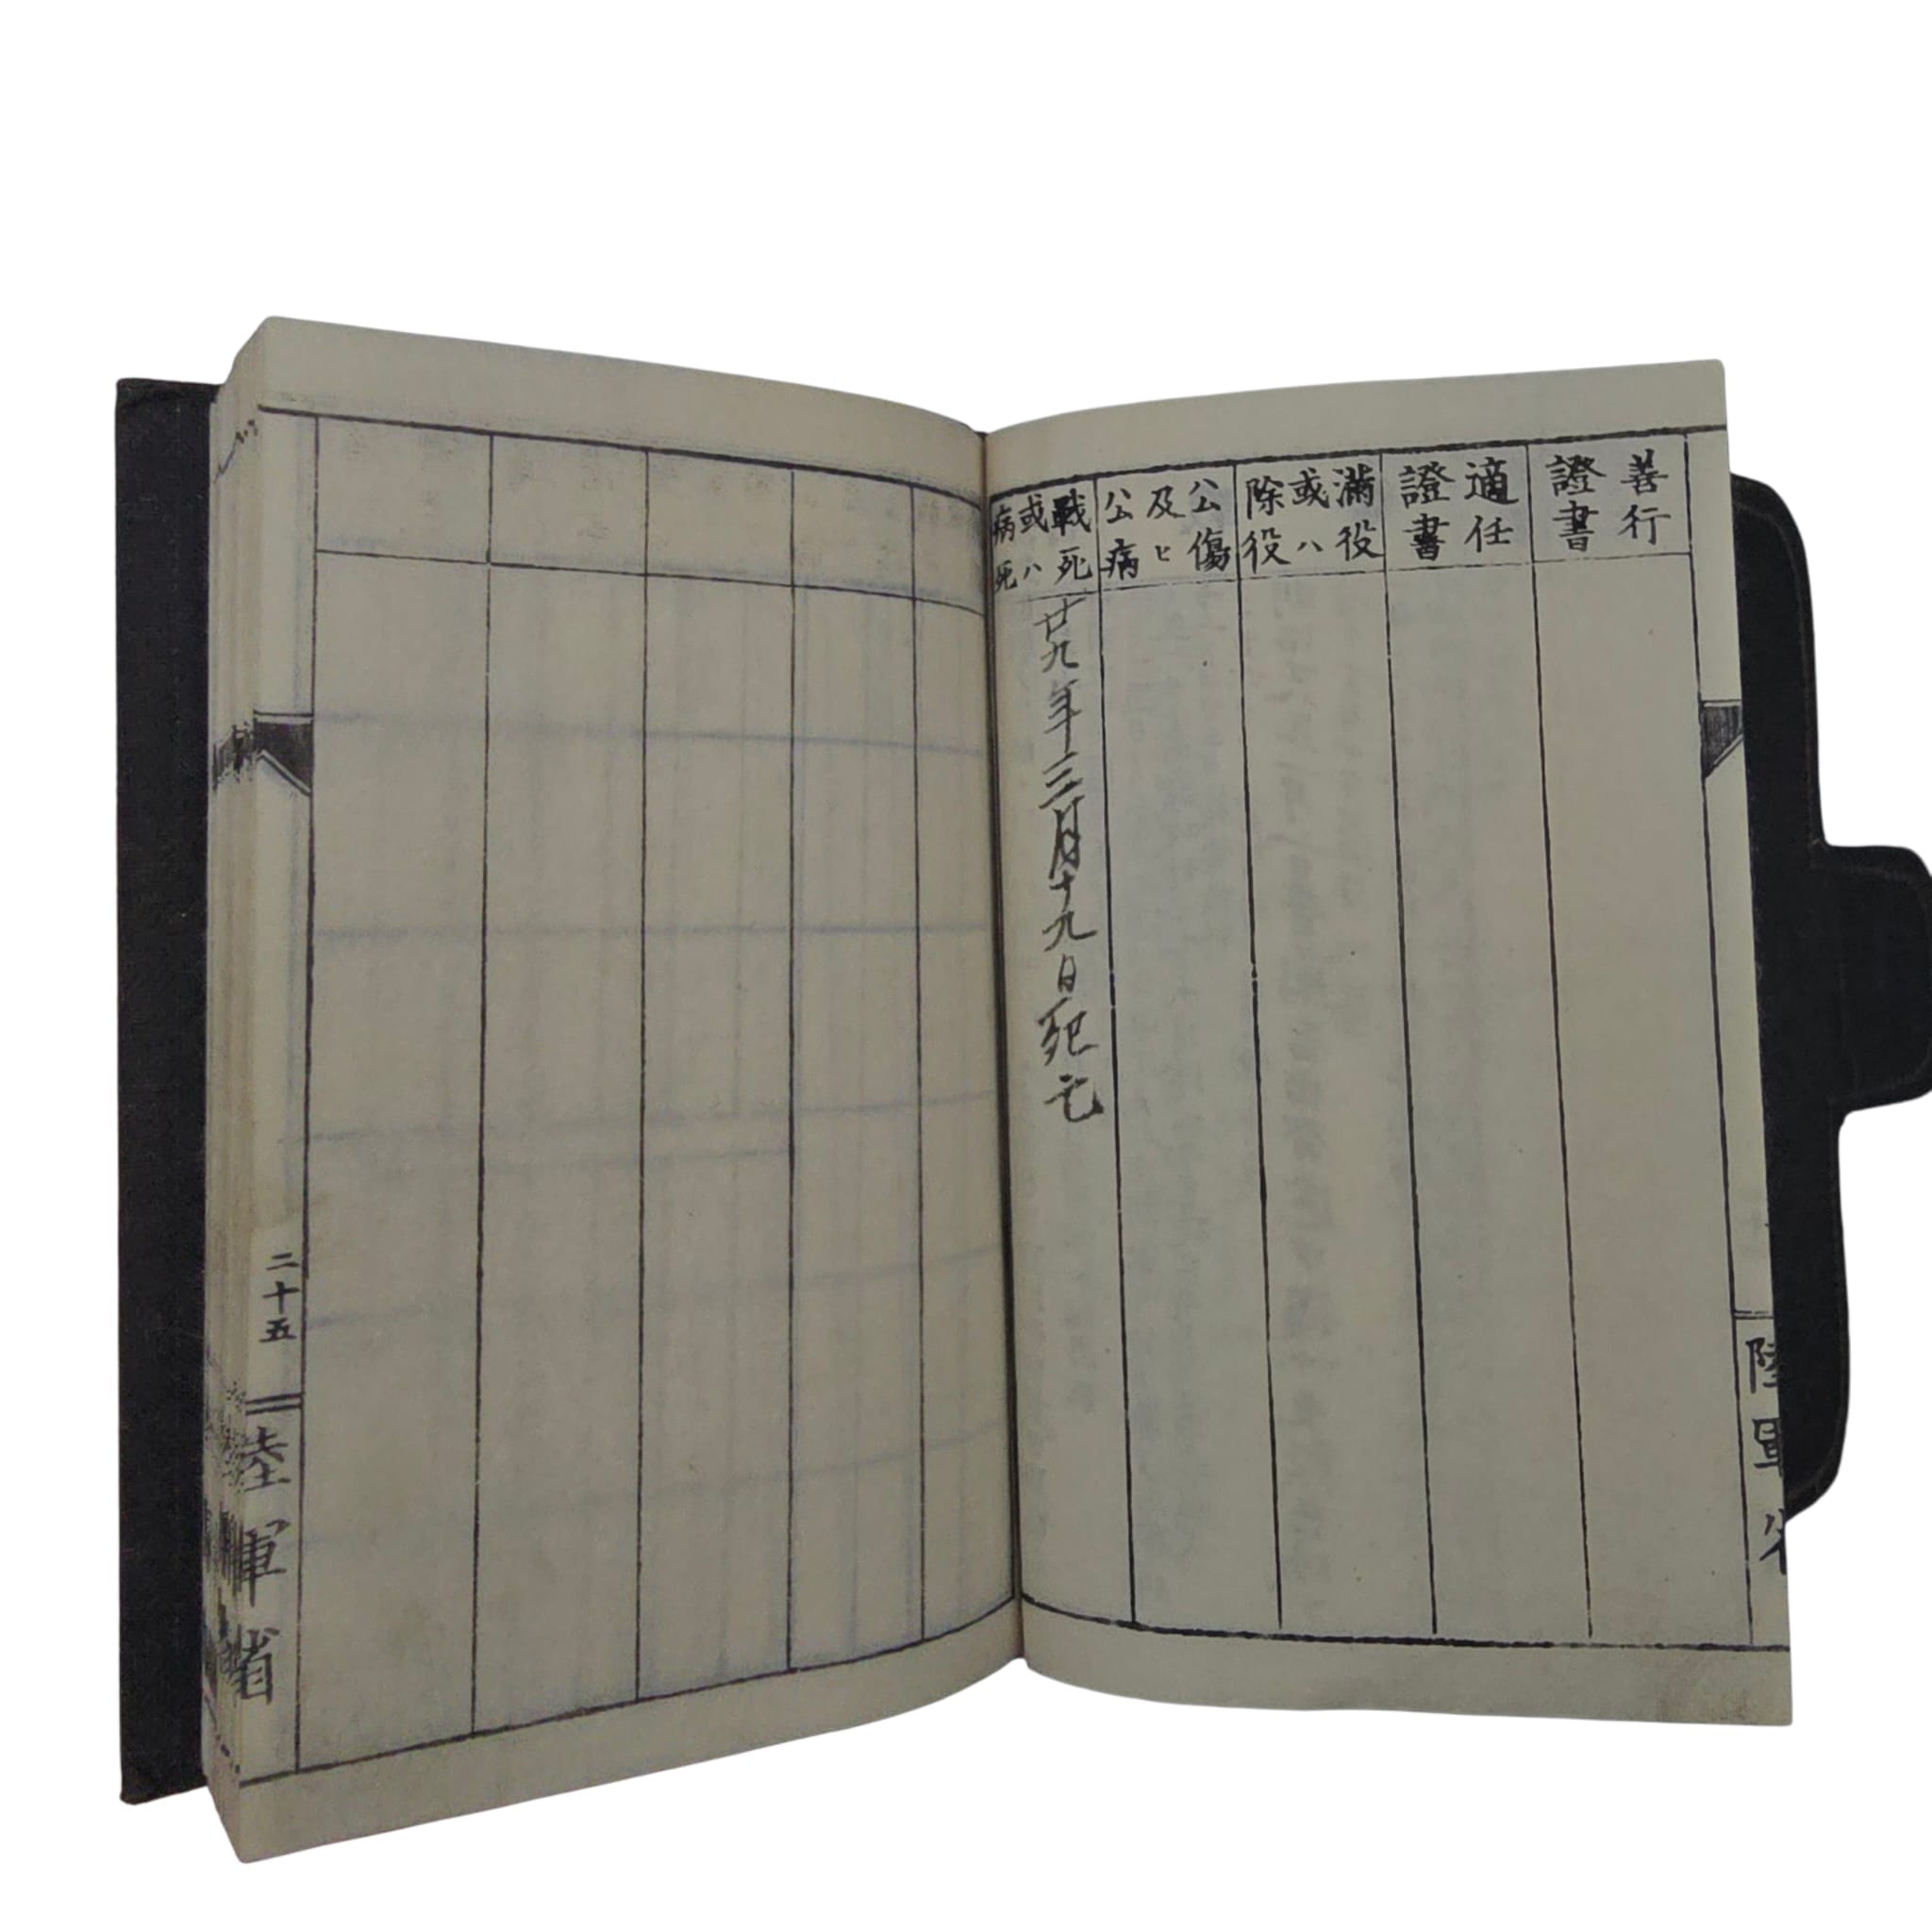 善行
證書
適任
證書
滿役
或ハ
除役
公傷
及ヒ
公病
戰死
或ハ
病死
廿九年三月十九日死亡
陸軍省
二十五
陸軍省